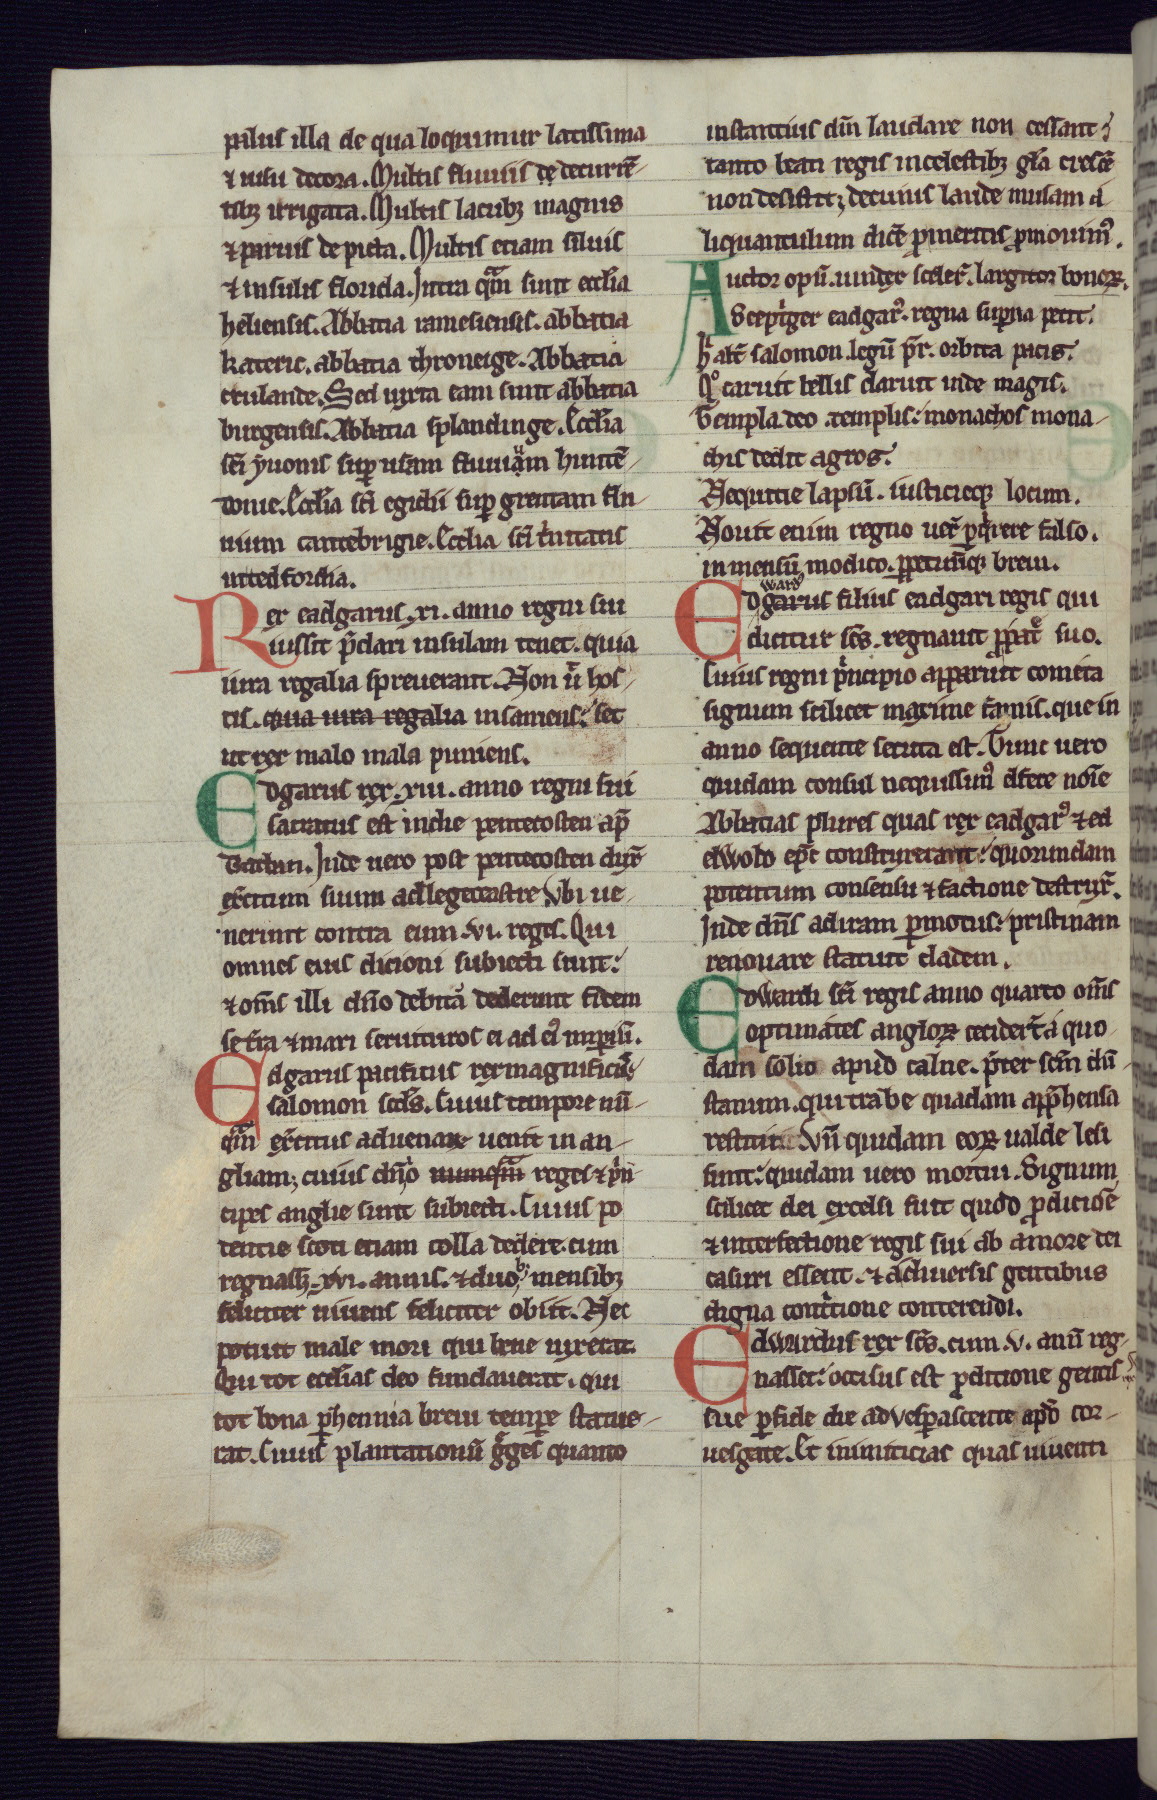 palus illa de qua loquimur latissima
⁊ uisu decora. Multis fluuiis de decurrē-
tibꝫ irrigata. Multis lacubꝫ magnis
⁊ paruis depicta. Multis etiam siluis
⁊ insulis florida. Intra quam sunt eccl̄ia
heliensis. Abbatia ramesiensis. abbatia
kateric. abbatia thorneige. Abbatia
crulande. Sed iuxta eam sunt abbatia
burgensis. Abbatia splandinge. Eccl̄ia
sc̄i yuonis suꝑ usam fluuium huntē-
donie. Eccl̄ia sc̄i egidii suꝑ grentam flu-
uium cantebrigie. Eccl̄ia sc̄i t̓nitatis
intedfordia.
Rex eadgarus. xi. anno regni sui
iussit p̄dari insulam tenet. quia
iura regalia spreuerant. Non ū hos-
tis. quia iura regalia insaniens: set
ut rex malo mala puniens.
Edgarus rex. xiii. anno regni sui
sacratus est in die pentecosten ap̄
Bathan. Inde uero post pentecosten dux̄
ex̄citum suum ad legecestre Vbi ue-
nerunt contra eum .vi. reges. Qui
omnes eius dicioni subiecti sunt:
⁊ om̄s illi dn̄o debitā dederunt fidem
se t̄ra ⁊ mari seruituros ei ad ei᷒ imꝑiū.
Edgarus pacificus rex magnificus
salomon sc̄ds. Cuius tempore nū-
quam ex̄citus aduenax uenit in an-
gliam; cuius dn̄io nunquam reges ⁊ p̓n-
cipes anglie sunt subiecti. Cuius po
tentie scoti etiam colla dedere. cum
regnass&. xvi. annis. ⁊ duobꝫ mensibꝫ
feliciter uiuens feliciter obiit. Nec
potuit male mori qui bene uixerat.
Qui tot eccl̄ias deo fundauerat. qui
tot bona ꝑhennia breui tempore statue-
rat. Cuius plantationū g̓ges quanto
instantius dn̄m laudare non cessant:
tanto beati regis in celestibꝫ gl̄a cresc̄e
non desistit; de cuius laude musam a
liquantulum dic̄e ꝓ meritis ꝓmouim᷒.
Auctor opū. uindex sceler᷒. largitor bonoꝝ.
Sceptriger eadgar᷒. regna suꝑna petit.
Hic alt̄ salomon. legū p̄r. orbita pacis.
Qᵒ caruit bellis claruit inde magis.
Templa deo. templis: monachos mona-
chis dedit agros.
Nequitie lapsū. iusticieqꝫ locum.
Nouit enim regno uer̄ ꝑquirere falso.
inmensū modico. ꝑpetuūqꝫ breui.
ward᷒
Edgarus filius eadgari regis qui
dicitur sc̄s. regnauit ꝓ patre suo.
Cuius regni p̓ncipio apparuit cometa
signum scilicet maxime famis. que in
anno sequente secuta est. Tunc uero
quidam consul nequissim᷒ alfere noīe
Abbatias plures quas rex eadgar᷒ ⁊ ed
elwold ep̄c constituxerant: quorundam
potentum consensu ⁊ factione destruxit.
Inde dn̄s ad iram ꝑmotus: pristinam
renouare statuit cladem.
Edwardi sc̄i regis anno quarto om̄s
optimates angloꝝ cecider̄t a quo-
dam solio apud calne. p̄ter scm̄ dū-
stanum. qui trabe quadam app̄hensa
restitit. Vn̄ quidam eoꝝ ualde lesi
sunt: quidam uero mortui. Signum
scilicet dei excelsi fuit quod ꝓdicioē
⁊ interfectione regis sui ab amore dei
casuri essent. ⁊ a diuersis gentibus
digna contricione conterendi.
Edwardus rex sc̄s. cum .v. annis reg-
nasset: occisus est ꝓditione gentis
sue ꝑfide die aduesꝑascente apud cor-
uesgate. Et inimicicias quas uiuenti